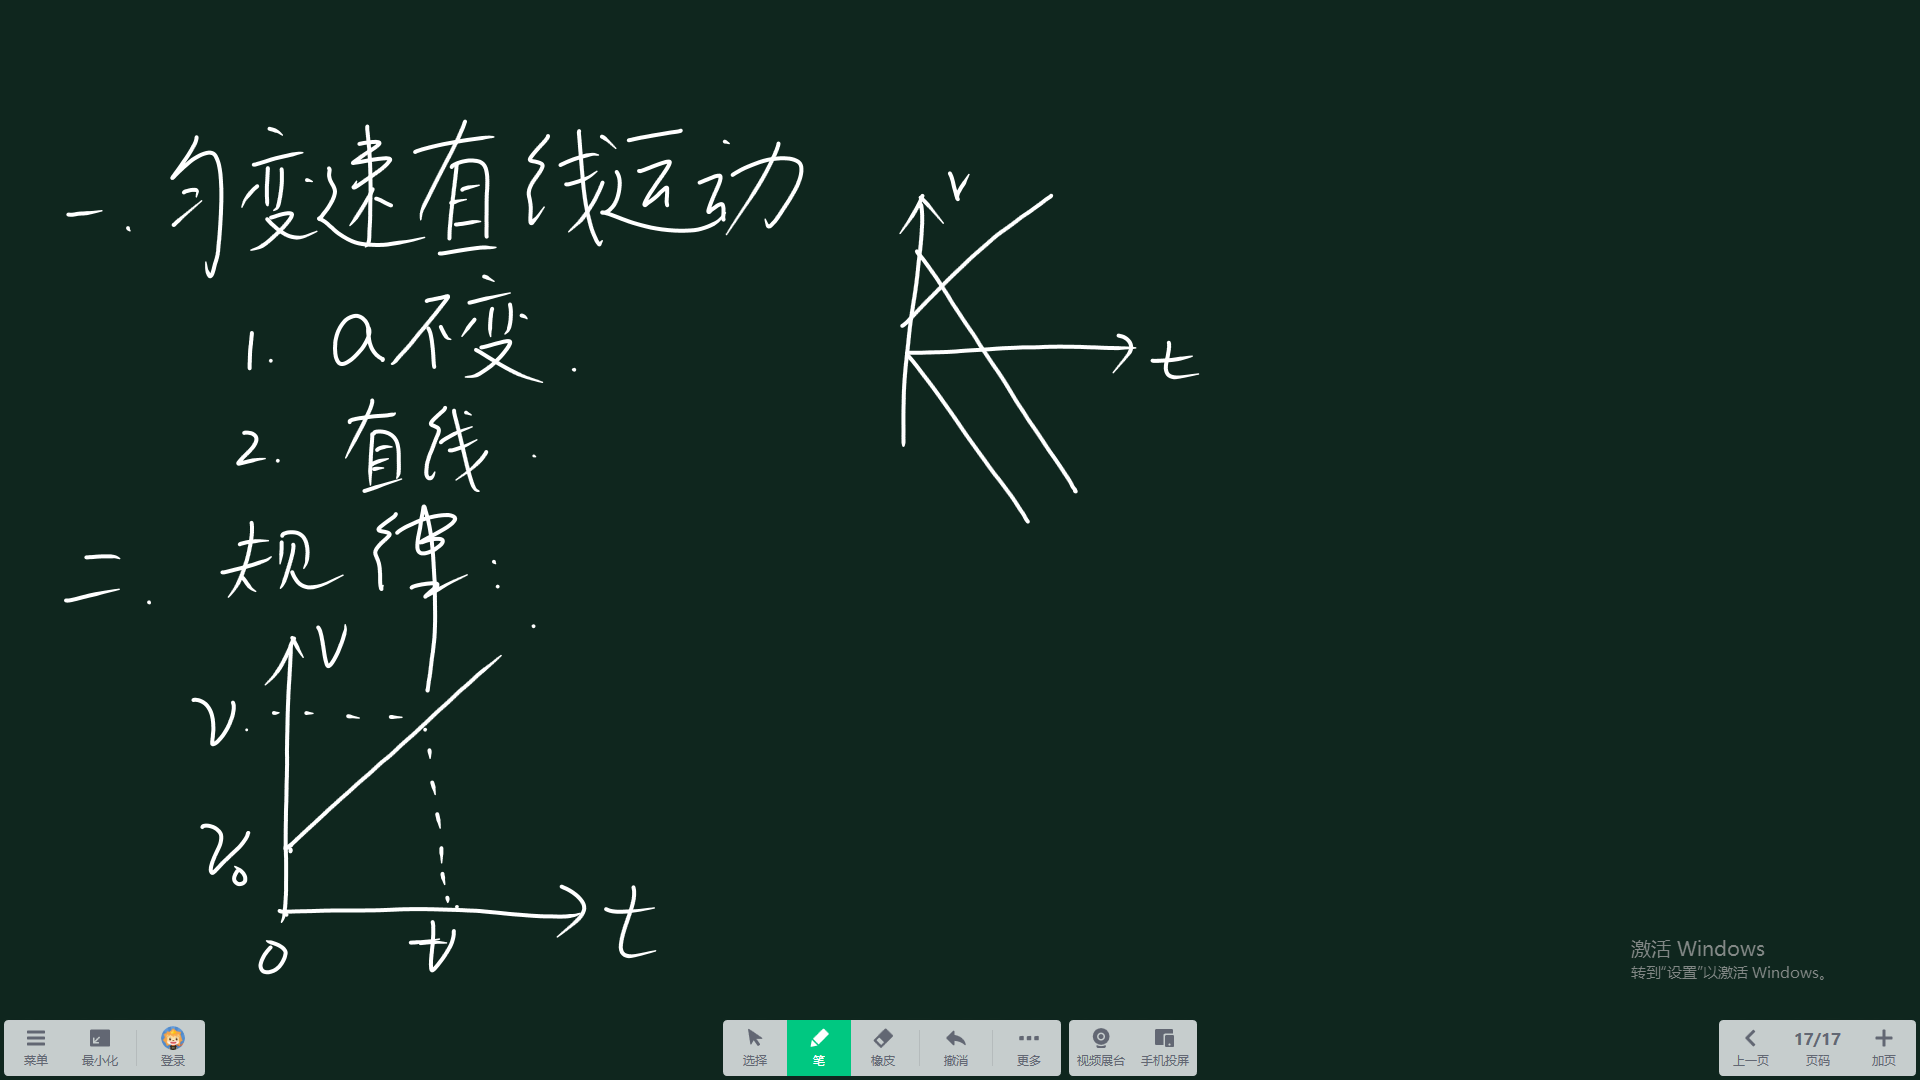 一. 匀变速直线运动
1. a不变.
2. 直线.
二. 规律:
v
t
v
v.
v₀
0
t
t
激活 Windows
转到“设置”以激活 Windows。
菜单
最小化
登录
选择
笔
橡皮
撤消
更多
视频展台
手机投屏
上一页
17/17
页码
加页